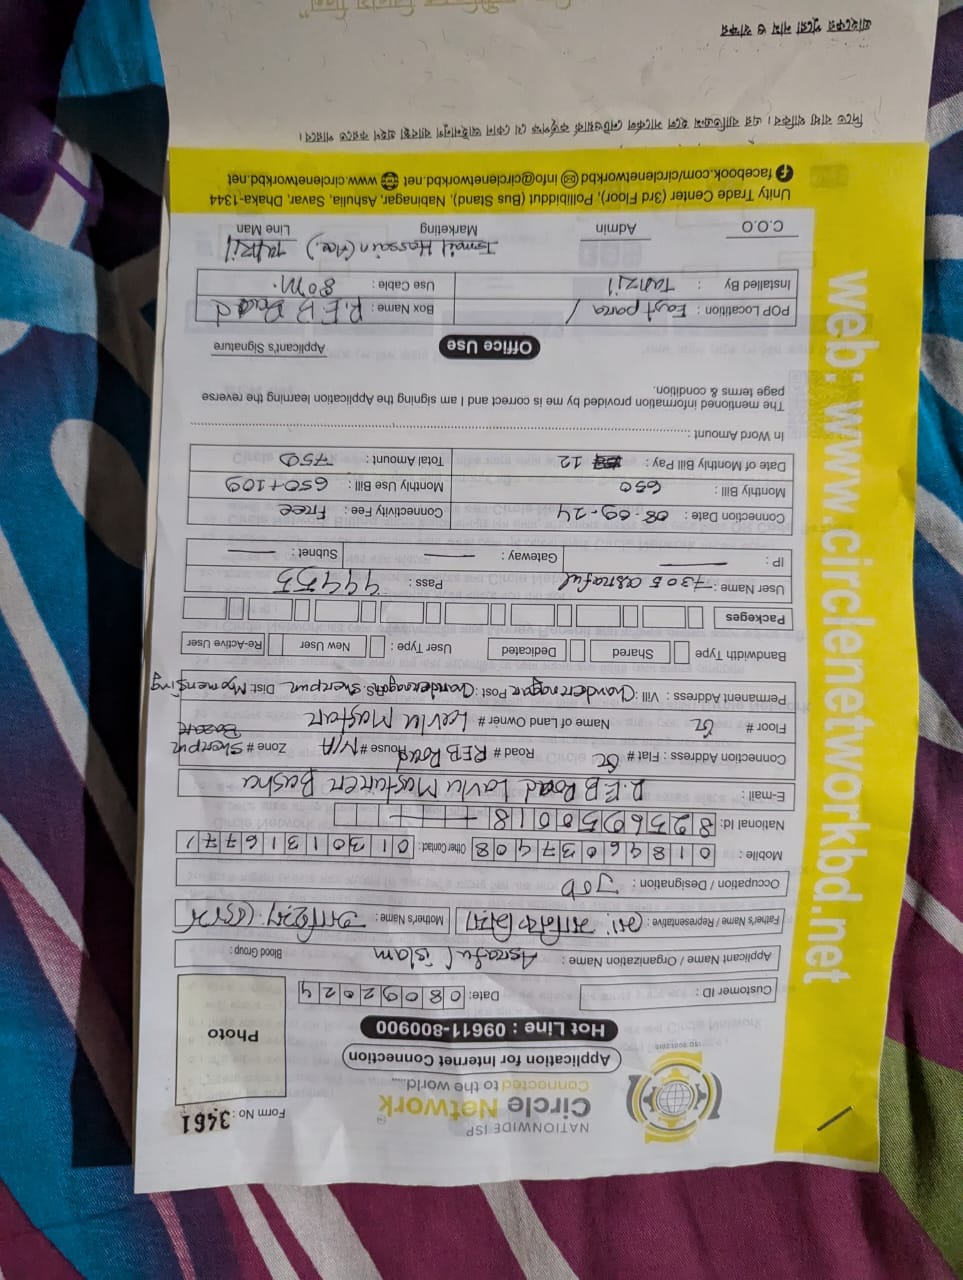 Form No : 3461
NATIONWIDE ISP
Circle Network
Connected to the world......
ISO 9001:2015
Application for Internet Connection
Hot Line : 09611-800900
Photo
Customer ID :
Date: 08092024
Applicant Name / Organization Name : Asraful islam
Blood Group :
Father's Name / Representative : মোঃ মানিক মিয়া
Mother's Name :
Occupation / Designation : JOB
Mobile : 01846037408 Other Contact: 0130131677
National Id: 8256950018
E-mail : R.E.B Road Lavlu Masturer Basha
Connection Address : Flat # Road # REB Road House # N/A Zone # Sherpur
Floor # Name of Land Owner # Lavlu Mastarr
Permanent Address : Vill : Chandernagar Post : Chandernagar P.S. Sherpur Dist. Mymensing
Bandwidth Type Shared Dedicated User Type : New User Re-Active User
Packeges
User Name : 7305 asraful Pass : 44455
IP : Gateway : Subnet :
Connection Date : 08-09-24 Connectivity Fee : Free
Monthly Bill : 650 Monthly Use Bill : 650+109
Date of Monthly Bill Pay : 12 Total Amount : 750
In Word Amount :
The mentioned information provided by me is correct and I am signing the Application learning the reverse
page terms & condition.
Applicant's Signature
Office Use
POP Locatiation : East para Box Name : R.E.B Road
Installed By : Tanzil Use Cable : 80 M.
Ismail Hossain Tanzil
C.O.O Admin Marketing Line Man
Unity Trade Center (3rd Floor), Pollibiddut (Bus Stand), Nabinagar, Ashulia, Savar, Dhaka-1344
facebook.com/circlenetworkbd info@circlenetworkbd.net www.circlenetworkbd.net
web: www.circlenetworkbd.net